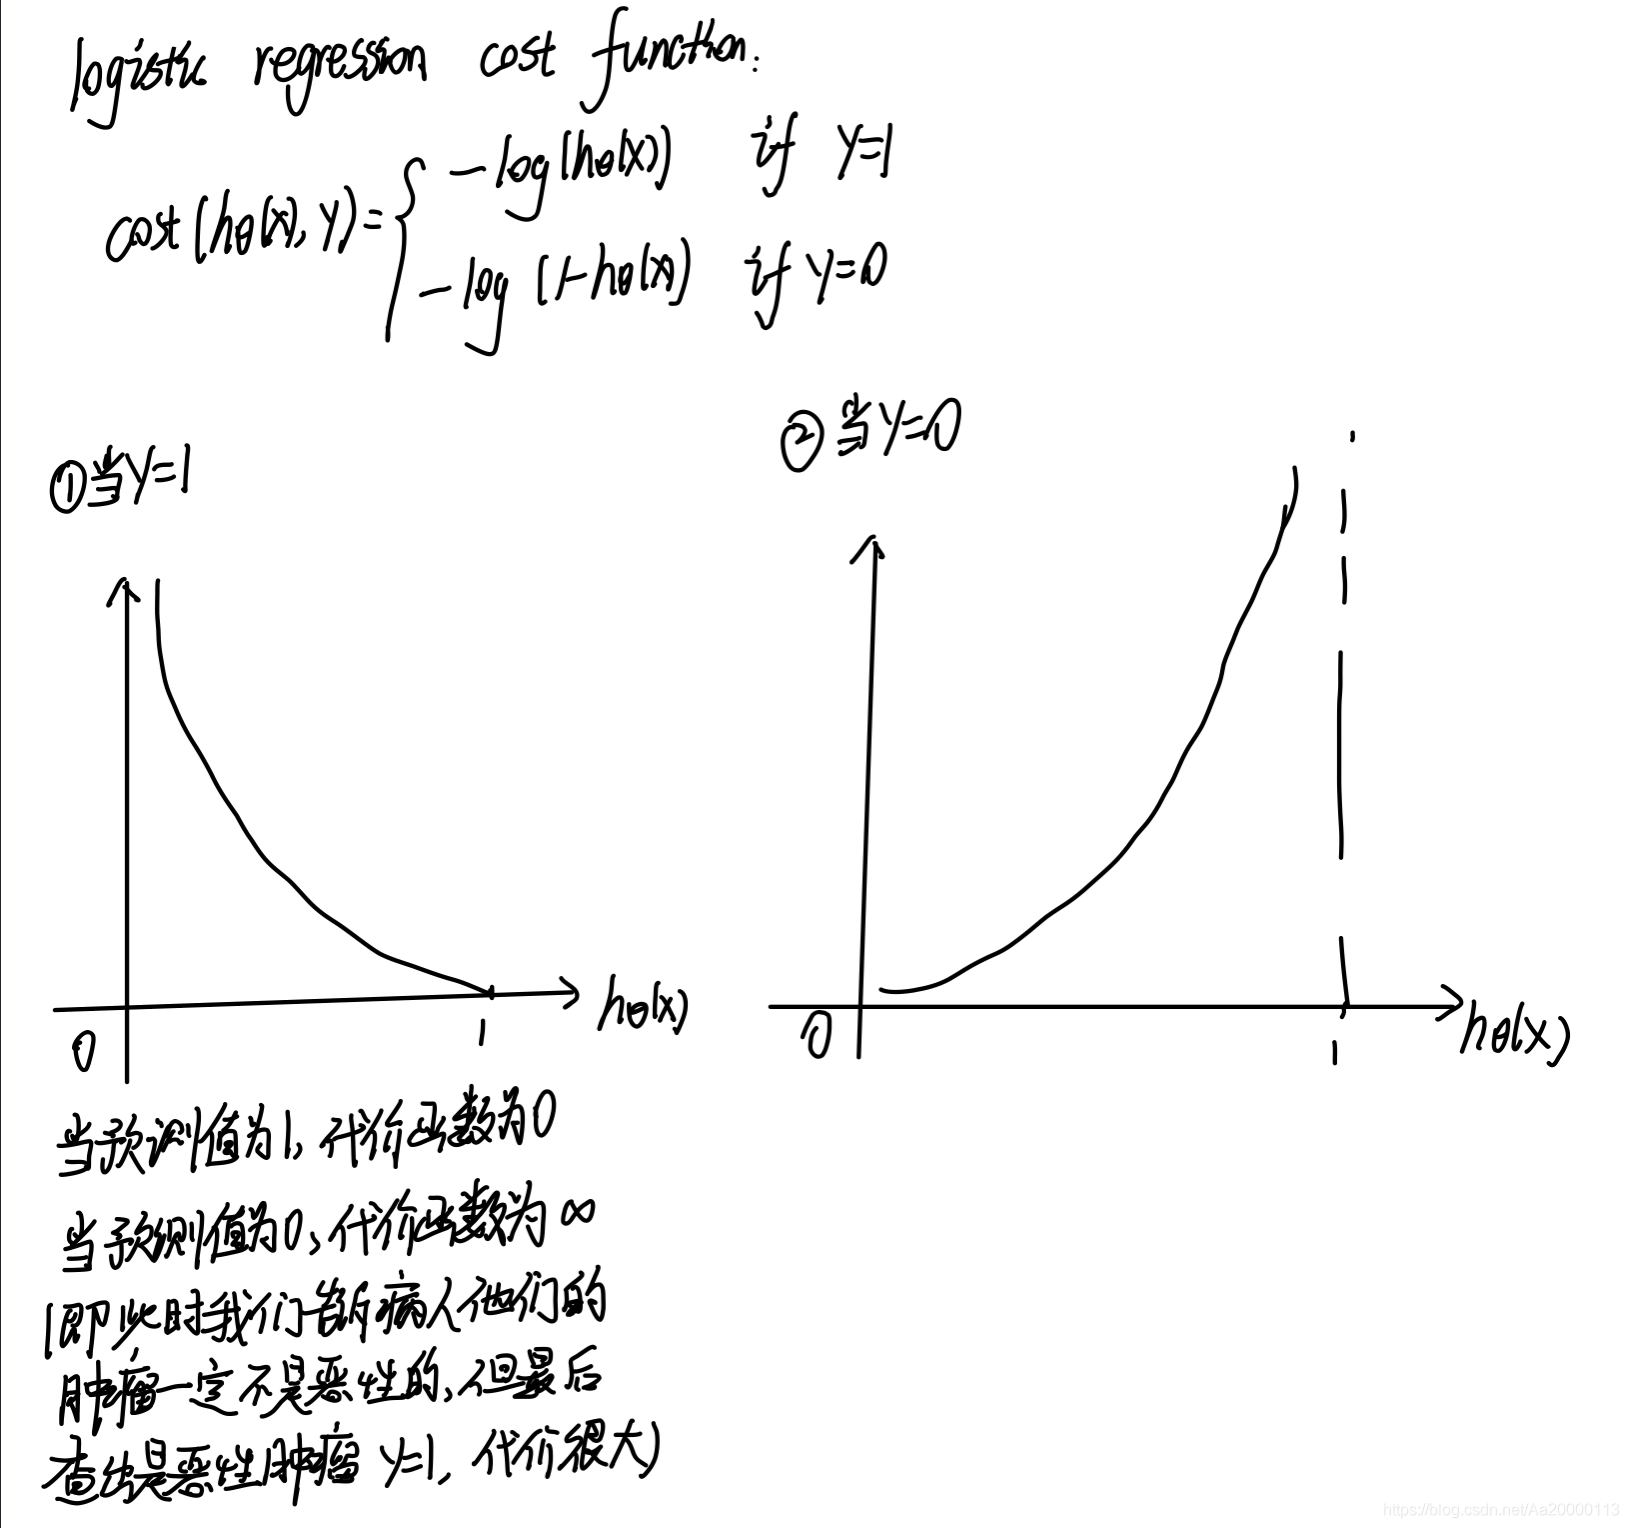 logistic regression cost function:
cost(hθ(x), y)= { -log(hθ(x)) if y=1
-log (1-hθ(x)) if y=0
①当y=1
②当y=0
0
1
hθ(x)
0
1
hθ(x)
当预测值为1, 代价函数为0
当预测值为0, 代价函数为∞
(即此时我们告诉病人他们的
肿瘤一定不是恶性的, 但最后
查出是恶性肿瘤 y=1, 代价很大)
https://blog.csdn.net/Aa20000113